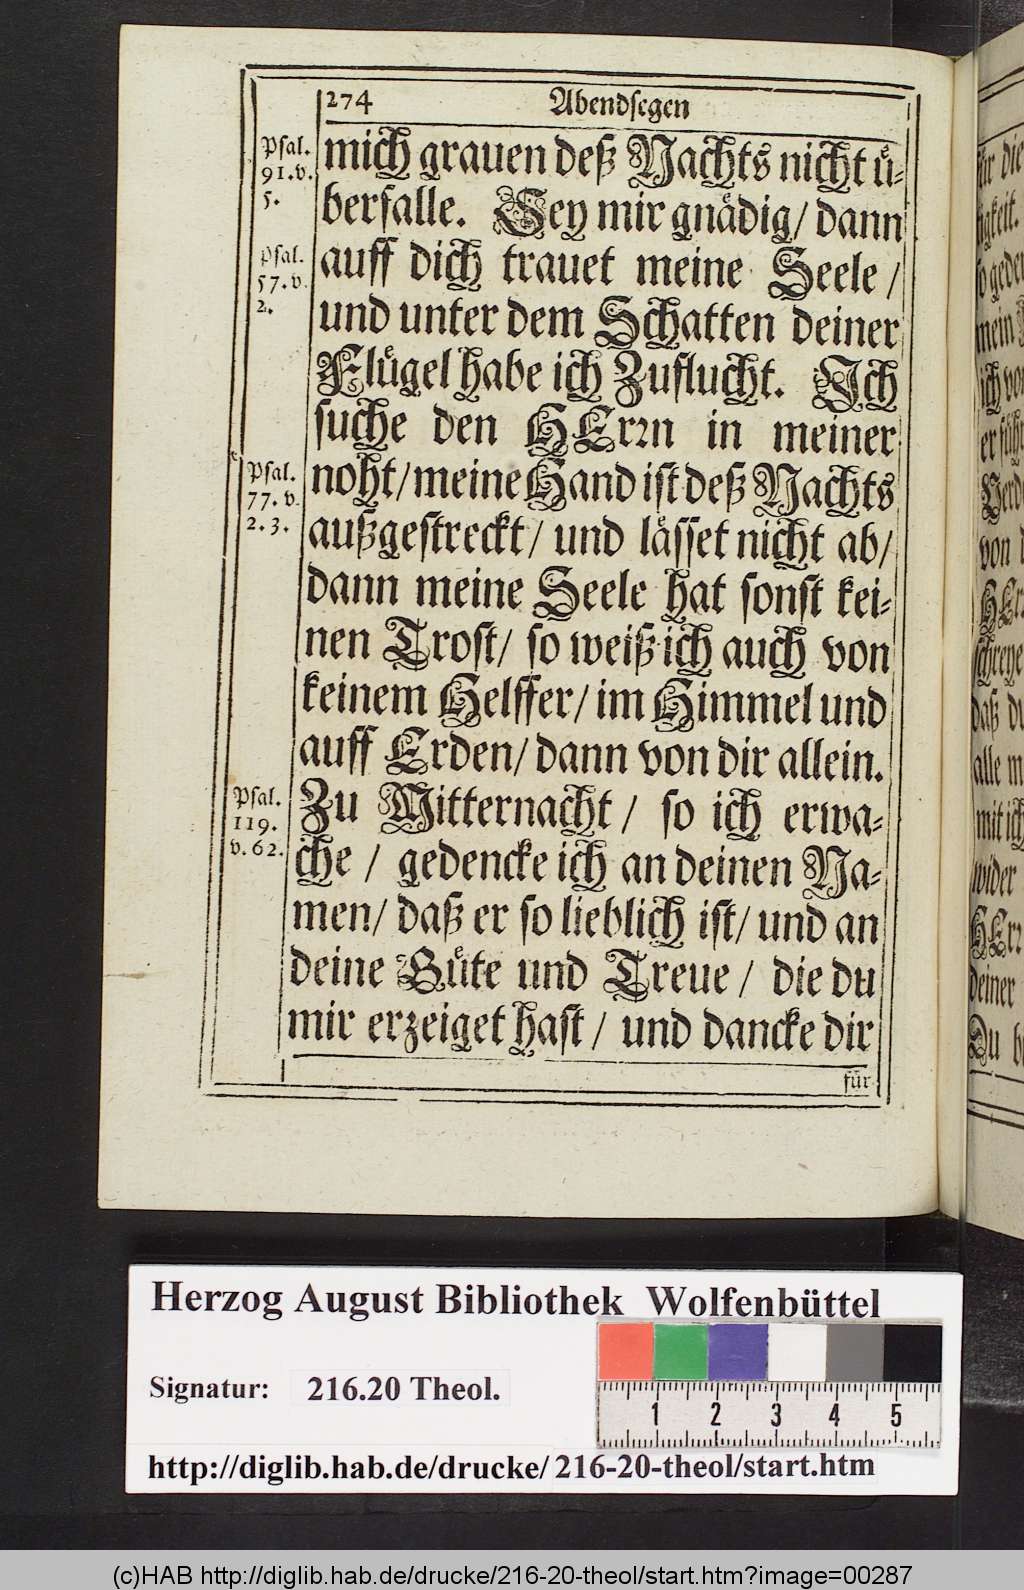 274 Abendsegen
Psal. 91. v. 5.
mich grauen deß Nachts nicht uͤ-
berfalle. Sey mir gnaͤdig/ dann
Psal. 57. v. 2.
auff dich trauet meine Seele/
und unter dem Schatten deiner
Fluͤgel habe ich Zuflucht. Ich
suche den HErꝛn in meiner
Psal. 77. v. 2. 3.
noht/ meine Hand ist deß Nachts
außgestreckt/ und laͤsset nicht ab/
dann meine Seele hat sonst kei-
nen Trost/ so weiß ich auch von
keinem Helffer/ im Himmel und
auff Erden/ dann von dir allein.
Psal. 119. v. 62.
Zu Mitternacht/ so ich erwa-
che/ gedencke ich an deinen Na-
men/ daß er so lieblich ist/ und an
deine Guͤte und Treue/ die du
mir erzeiget hast/ und dancke dir
fuͤr
Herzog August Bibliothek Wolfenbüttel
Signatur: 216.20 Theol.
1 2 3 4 5
http://diglib.hab.de/drucke/216-20-theol/start.htm
(c)HAB http://diglib.hab.de/drucke/216-20-theol/start.htm?image=00287